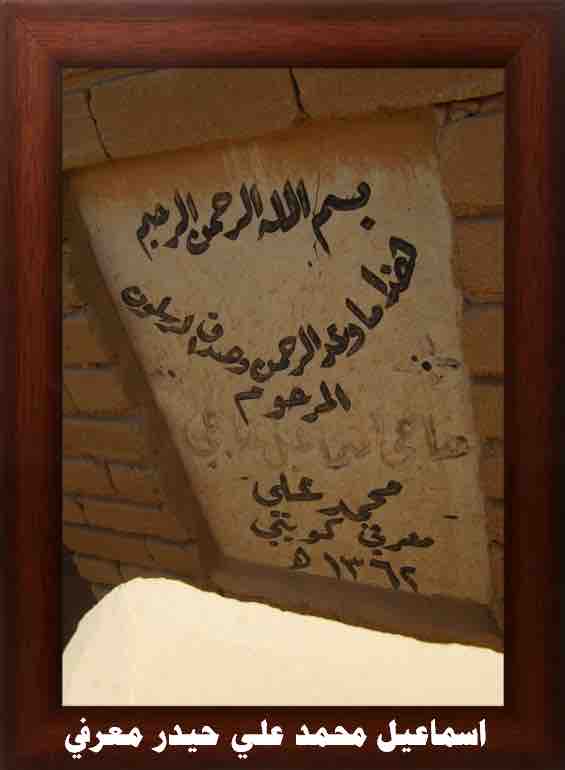 بسم الله الرحمن الرحيم
هذا ما وعد الرحمن وصدق المرسلون
المرحوم
محمد علي
معرفي كويتي
١٣٦٢ ه
اسماعيل محمد علي حيدر معرفي